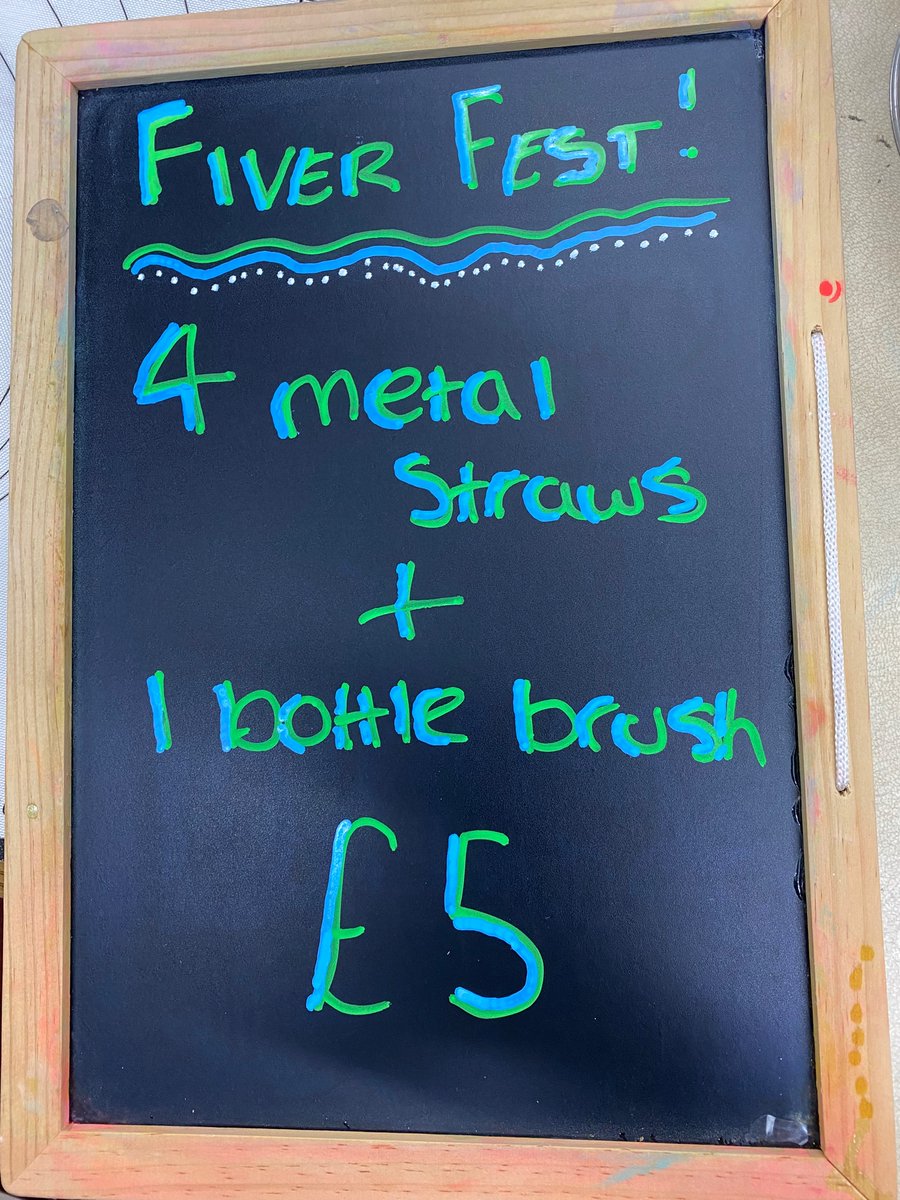 FIVER FEST!
4 metal
Straws
+
1 bottle brush
£5